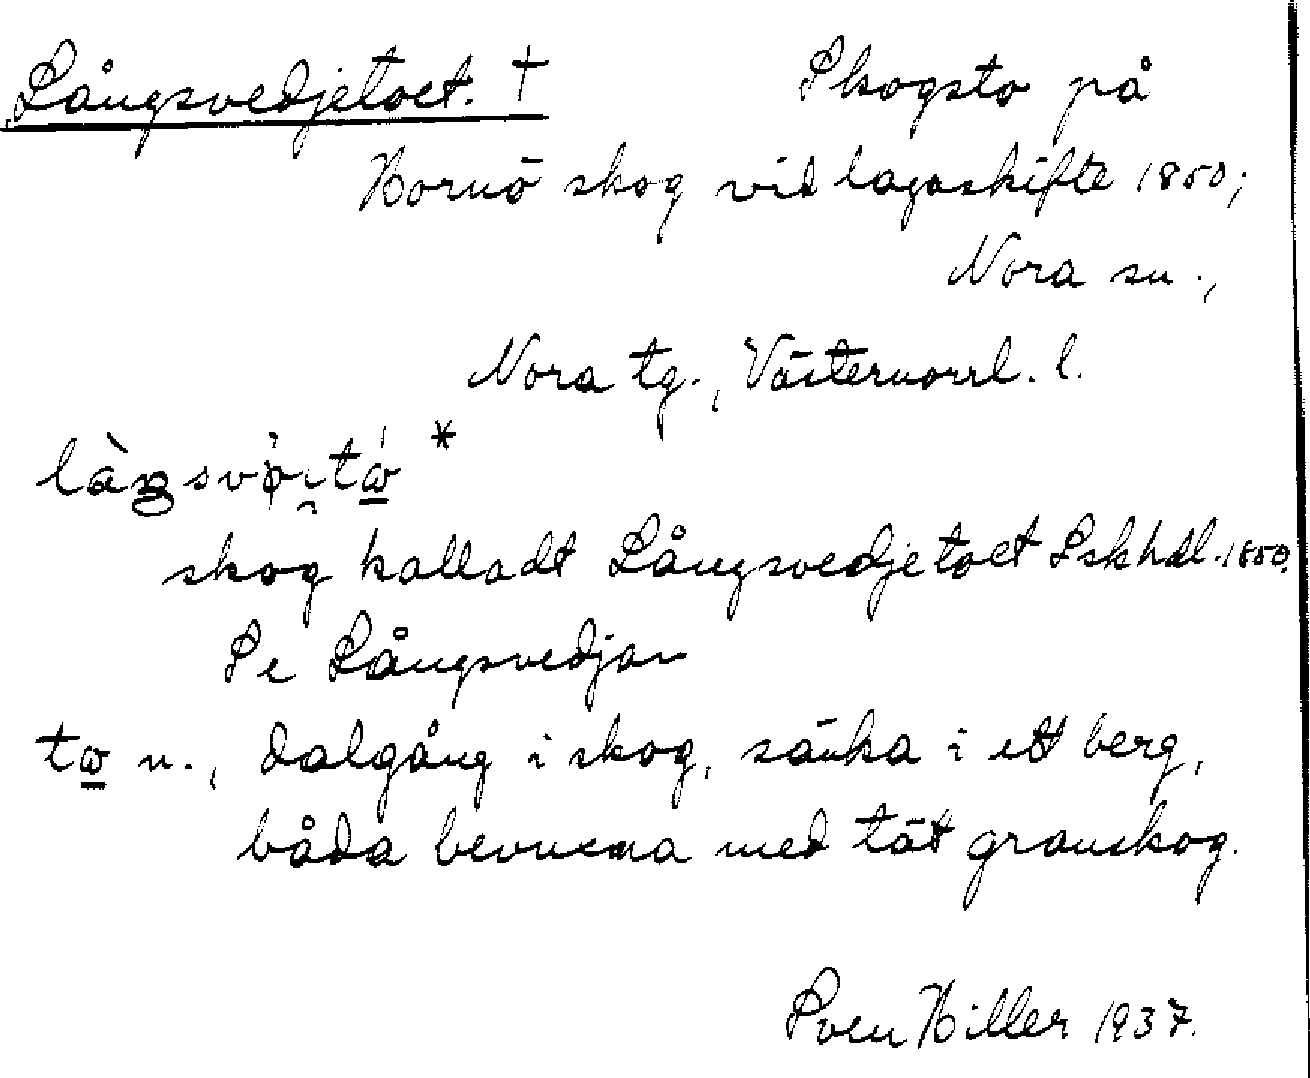 Långsvedjetoet. † Skogsto på
Hornö skog vid lagaskifte 1850;
Nora sn.,
Nora tg., Västernorrl. l.
skog kalladt Långsvedjetoet Lskhdl. 1850.
Se Långsvedjan
n., dalgång i skog, sänka i ett berg,
båda bevuxna med tät granskog.
Sven Hiller 1937.